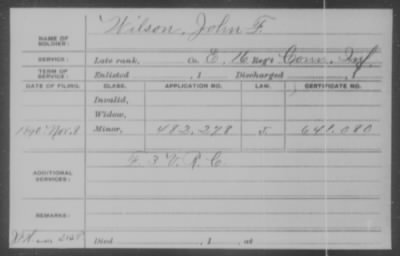 NAME OF SOLDIER: Wilson, John F.
SERVICE: Late rank, Co. E, 16 Reg't Conn. Inf.
TERM OF SERVICE: Enlisted , 1 Discharged , 1
DATE OF FILING. CLASS. APPLICATION NO. LAW. CERTIFICATE NO.
Invalid,
Widow,
1890 Nov. 8 Minor, 482,278 J. 641,080
ADDITIONAL SERVICES: F. 3 V. R. C.
REMARKS:
Died , 1 , at